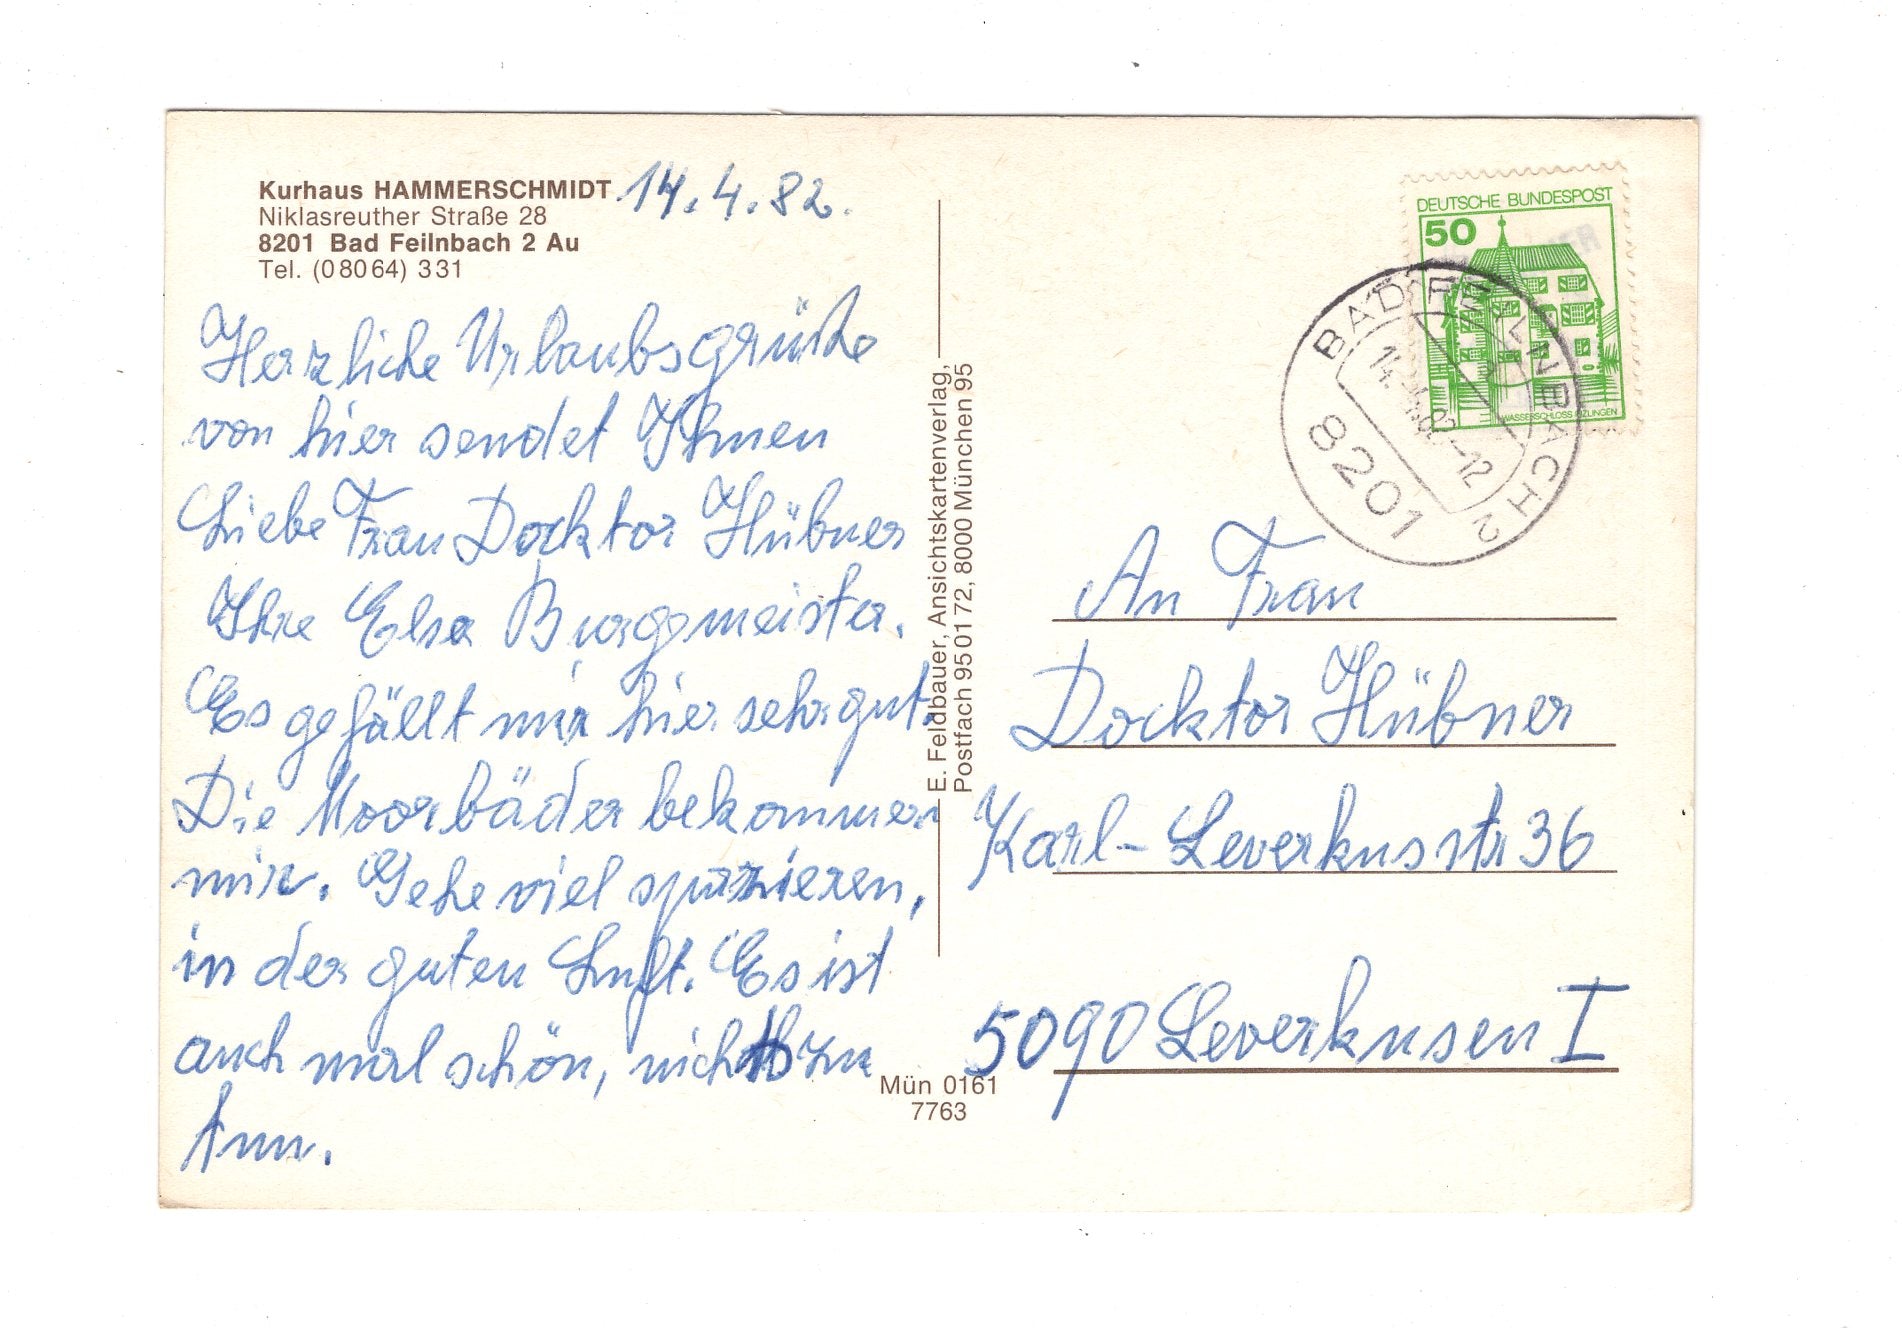 Kurhaus HAMMERSCHMIDT 14.4.82.
Niklasreuther Straße 28
8201 Bad Feilnbach 2 Au
Tel. (08064) 331
Herzliche Urlaubsgrüße
von hier sendet Ihnen
Liebe Frau Docktor Hübner
Ihre Elsa Burgsmeister.
Es gefällt mir hier sehr gut.
Die Moorbäder bekommen
mir. Gehe viel spazieren,
in der guten Luft. Es ist
auch mal schön, nichts zu
tun.
E. Feldbauer, Ansichtskartenverlag,
Postfach 95 01 72, 8000 München 95
Mün 0161
7763
DEUTSCHE BUNDESPOST
50
WASSERSCHLOSS INZLINGEN
BAD FEILNBACH 2
14.-4.82-12
8201
An Frau
Docktor Hübner
Karl-Leverkusstr 36
5090 Leverkusen I